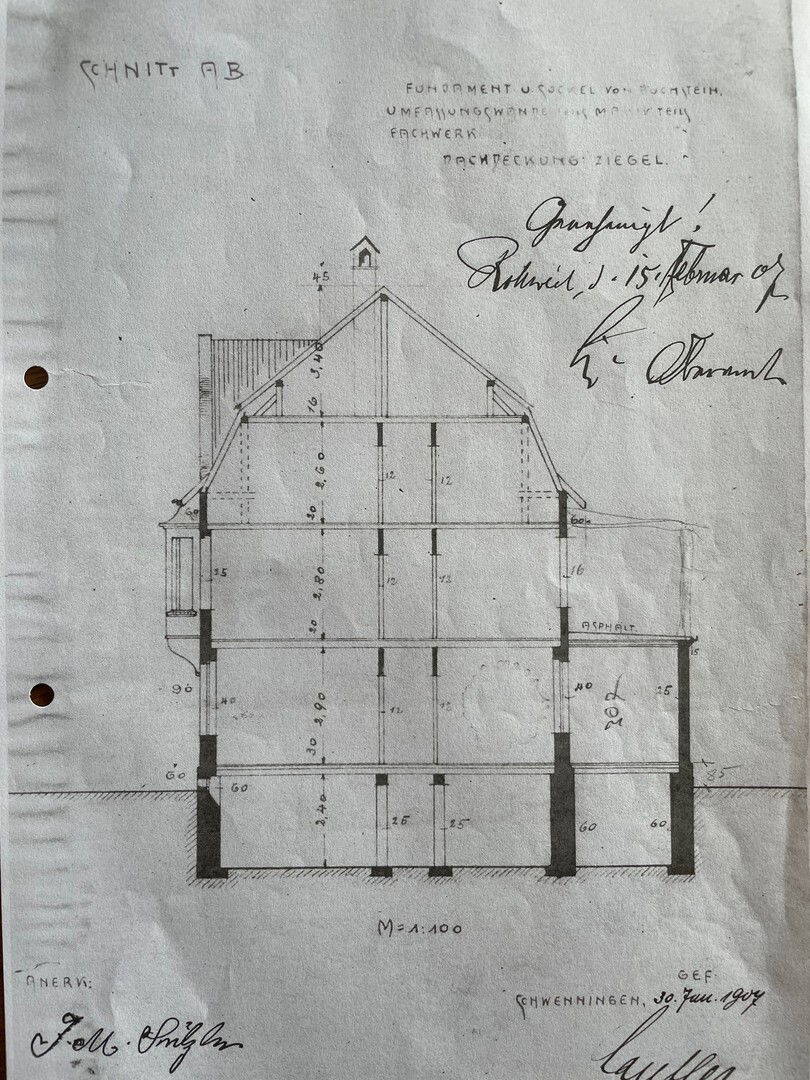 SCHNITT AB
FUNDAMENT U. SOCKEL VON BUCHSTEIN,
UMFASSUNGSWÄNDE TEILS MASSIV TEILS
FACHWERK
DACHDECKUNG: ZIEGEL.
Genehmigt!
Rottweil, d. 15. Februar 07
K. Oberamt
45
3,40
16
2,60
12
12
20
60
60
15
2,80
12
12
16
20
ASPHALT
15
90
40
2,90
12
12
40
25
30
60
60
85
2,40
25
25
60
60
M=1:100
ANERK:
GEF.
SCHWENNINGEN, 30. Jan. 1907
J. M.